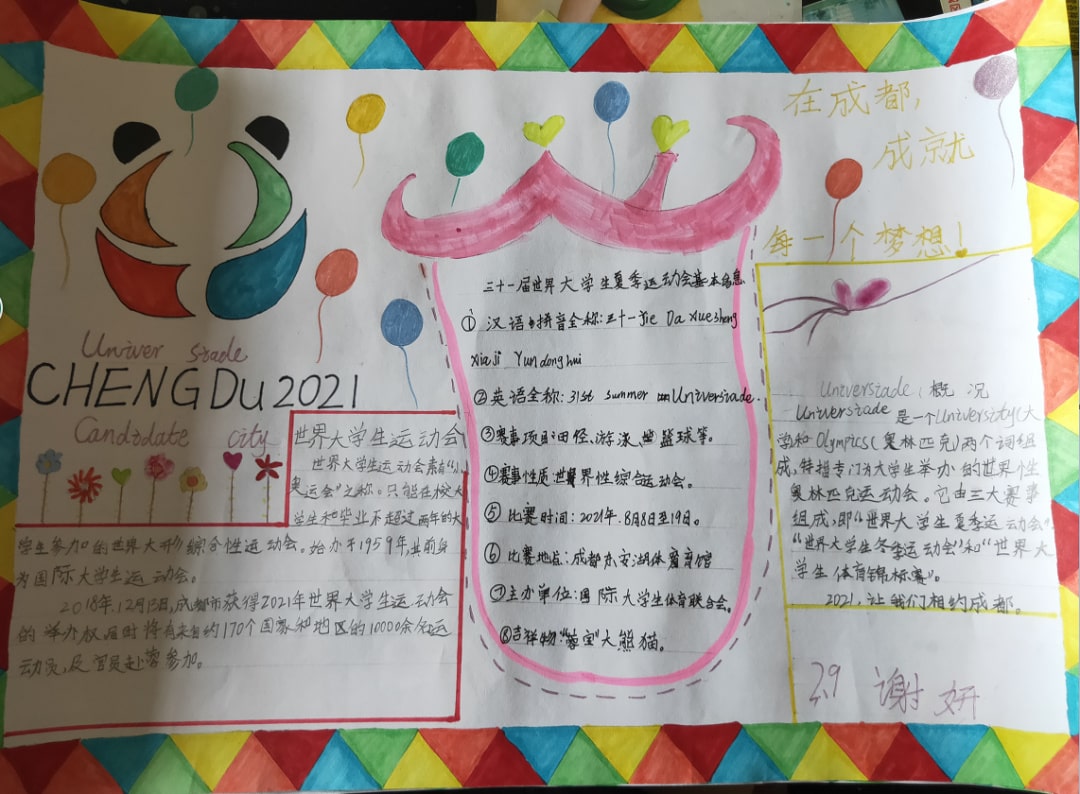 Univer siade
CHENGDU2021
Candidate city
世界大学生运动会
世界大学生运动会素有“小
奥运会”之称。只能在校大
学生和毕业不超过两年的大
学生参加的世界大形综合性运动会。始办于1959年,其前身
为国际大学生运动会。
2018年.12月13日,成都市获得2021年世界大学生运动会
的举办权届时将有来自约170个国家和地区的10000余名运
动员,及官员赴蓉参加。
三十一届世界大学生夏季运动会基本信息
① 汉语拼音全称:三十一Jie Da Xuesheng
Xiaji Yundonghui
②英语全称:31st summer Universiade.
③赛事项目:田径、游泳、篮球等。
④赛事性质:世界性综合运动会。
⑤比赛时间:2021年.8月8日至19日。
⑥比赛地点:成都东安湖体育馆
⑦主办单位:国际大学生体育联合会。
⑧吉祥物:“蓉宝”大熊猫。
在成都,
成就
每一个梦想!
Universiade,概况
Universiade是一个University(大
学和Olympics(奥林匹克)两个词组
成,特指专门为大学生举办的世界性
奥林匹克运动会。它由三大赛事
组成,即“世界大学生夏季运动会”
“世界大学生冬季运动会”和“世界大
学生体育锦标赛”。
2021,让我们相约成都。
2.9 谢妍